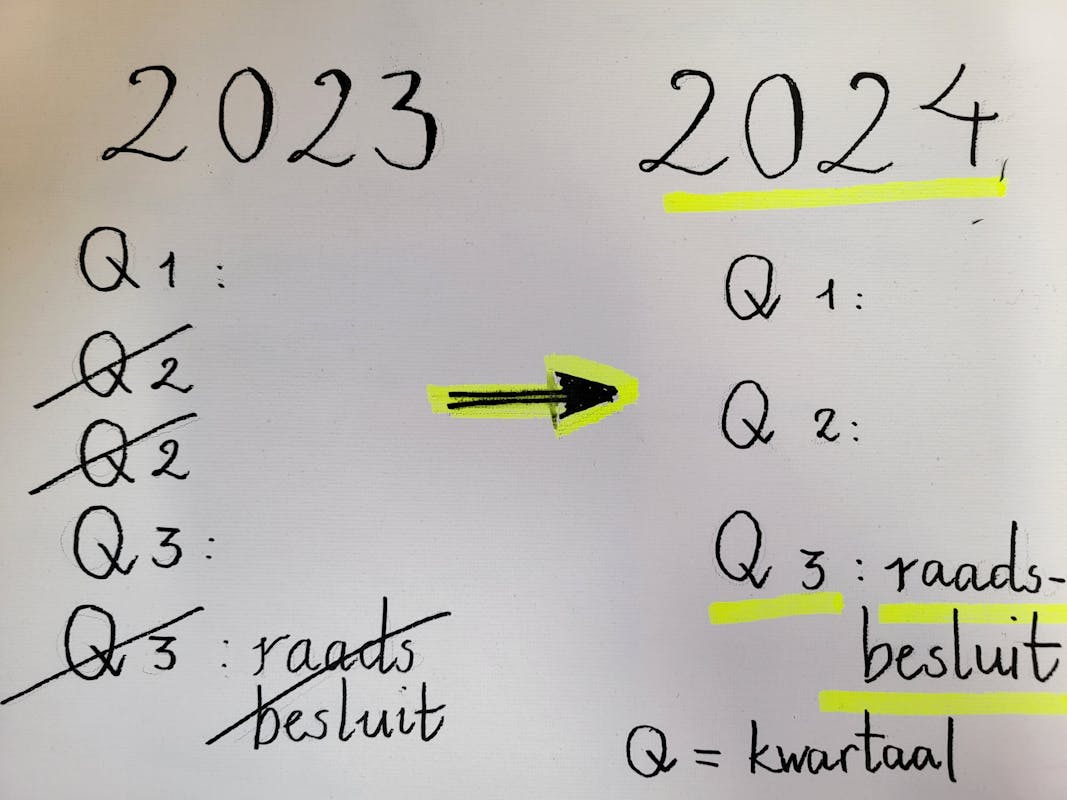 2023
Q1:
Q2
Q2
Q3:
Q3: raads
besluit
2024
Q 1:
Q 2:
Q 3: raads-
besluit
Q = kwartaal